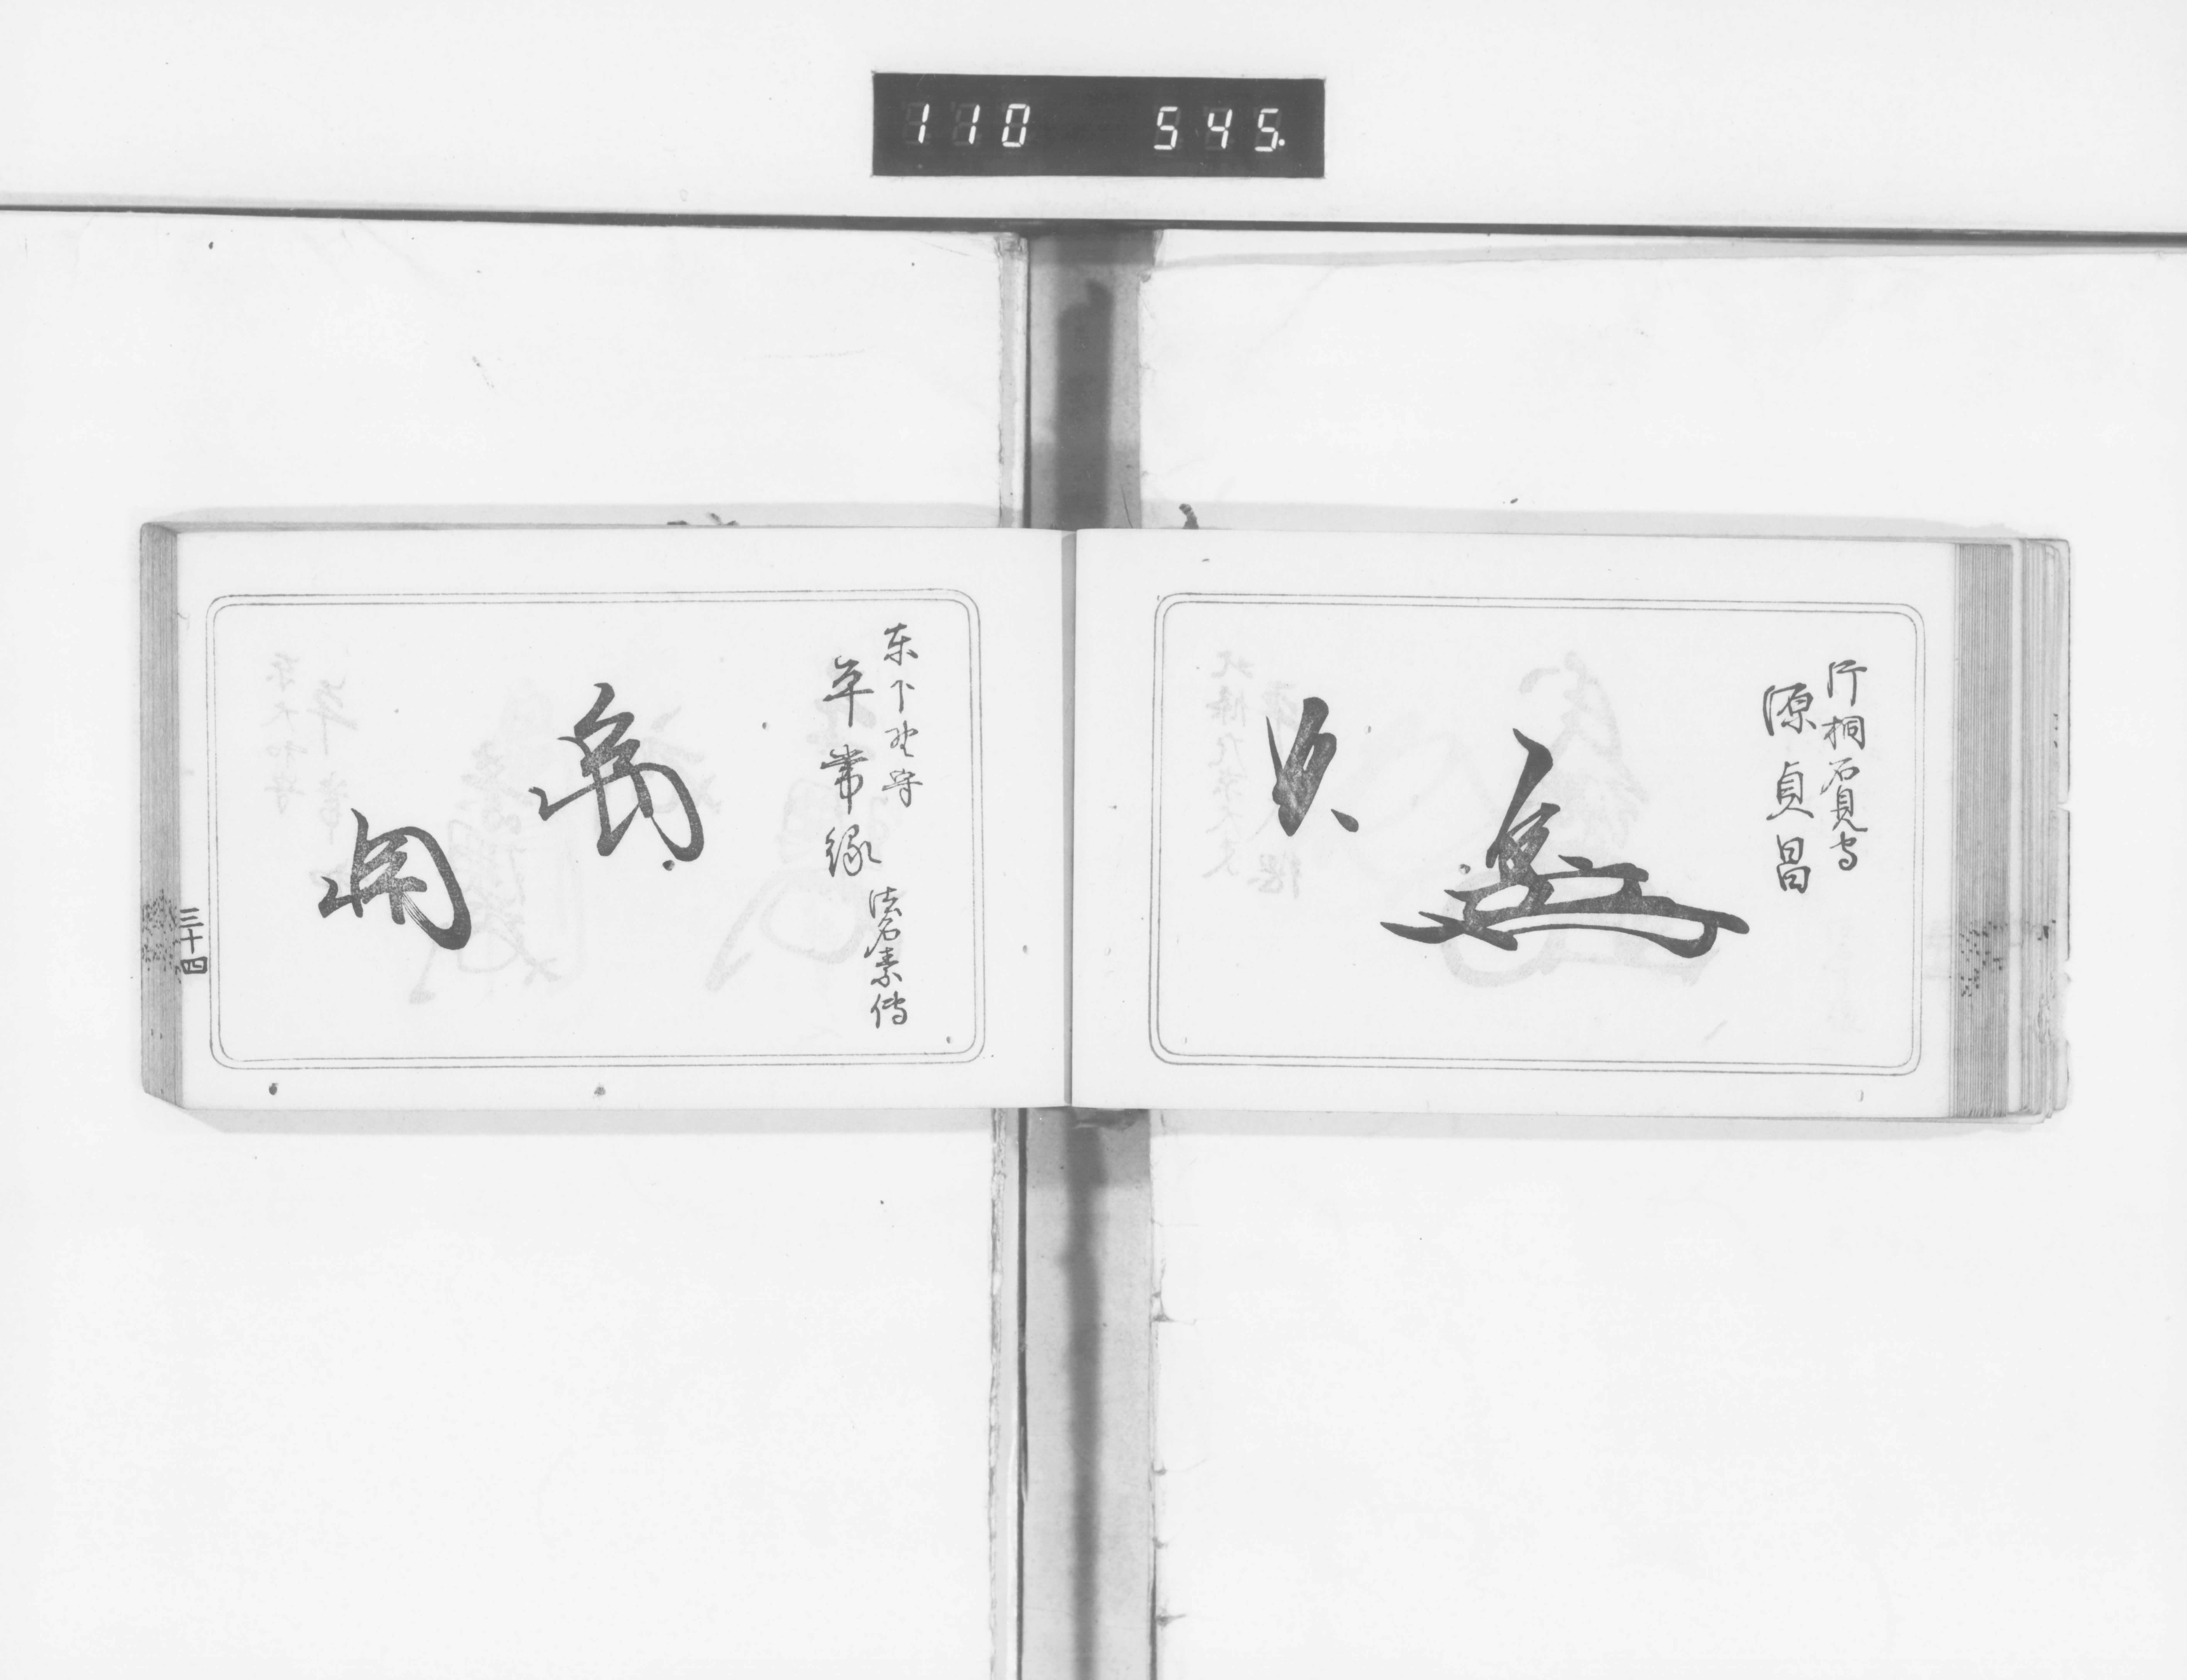 110 545.
片桐石見守
源貞昌
东下野守
平常縁
法名素傳
三十四